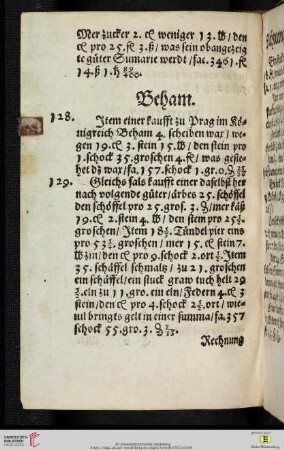 Mer zucker 2. ₡ weniger 13. ℔/ den
₡ pro 25. fl 3. ß/ was sein obangezeig
te güter Sumarie werdt/ fac. 3461. fl
14. ß 1. H
Beham.
128. Item einer kaufft zu Prag im Kö-
nigreich Beham 4. scheiben wax/ we-
gen 19. ₡ 3. stein 15. ℔/ den stein pro
1. schock 35. groschen 4. / was geste-
het dz wax/ fa. 157. schock 1. gr. 0.
129. Gleichfals kaufft einer daselbst her
nach volgende güter/ ärbes 25. schöffel
den schöffel pro 25. gros. 3. / mer käß
19. ₡ 2. stein 4. ℔/ den stein pro 25
groschen/ Item 18 Tündel pier eins
pro 53 groschen/ mer 15. ₡ stein 7.
℔ zin/ den ₡ pro 9. schock 2. ort Item
35. schäffel schmaltz/ zu 21. groschen
ein schäffel/ ein stuck graw tuch helt 29
eln zu 11. gro. ein eln/ Federn 4. ₡ 3
stein/ den ₡ pro 4. schock 2 ort/ wie-
uil bringts gelt in einer summa/ fa. 357
schock 55. gro. 3.
Rechnung